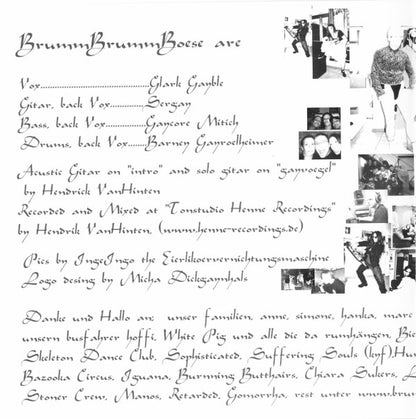 BrummBrummBoese are
Vox..............................Glark Gayble
Gitar, back Vox.............Sergay
Bass, back Vox...............Gaycore Mitich
Drums, back Vox......Barney Gayroelheimer
Acustic Gitar on "intro" and solo gitar on "gayroegel"
by Hendrick VanHinten
Recorded and Mixed at "Tonstudio Henne Recordings"
by Hendrik VanHinten, (www.henne-recordings.de)
Pics by IngeIngo the Eierlikoervernichtungsmaschine
Logo desing by Micha Dickgaynhals
Danke und Hallo an: unser familien, anne, simone, hanka, marc
unsern busfahrer hoffi, White Pig und alle die da rumhängen, Bie
Skeleton Dance Club, Sophisticated, Suffering Souls (knf),Hun
Bazooka Circus, Iguana, Burnning Butthairs, Chiara Sukers, L
Stoner Crew, Manos, Retarded, Gomorrha, rest unter www.bru